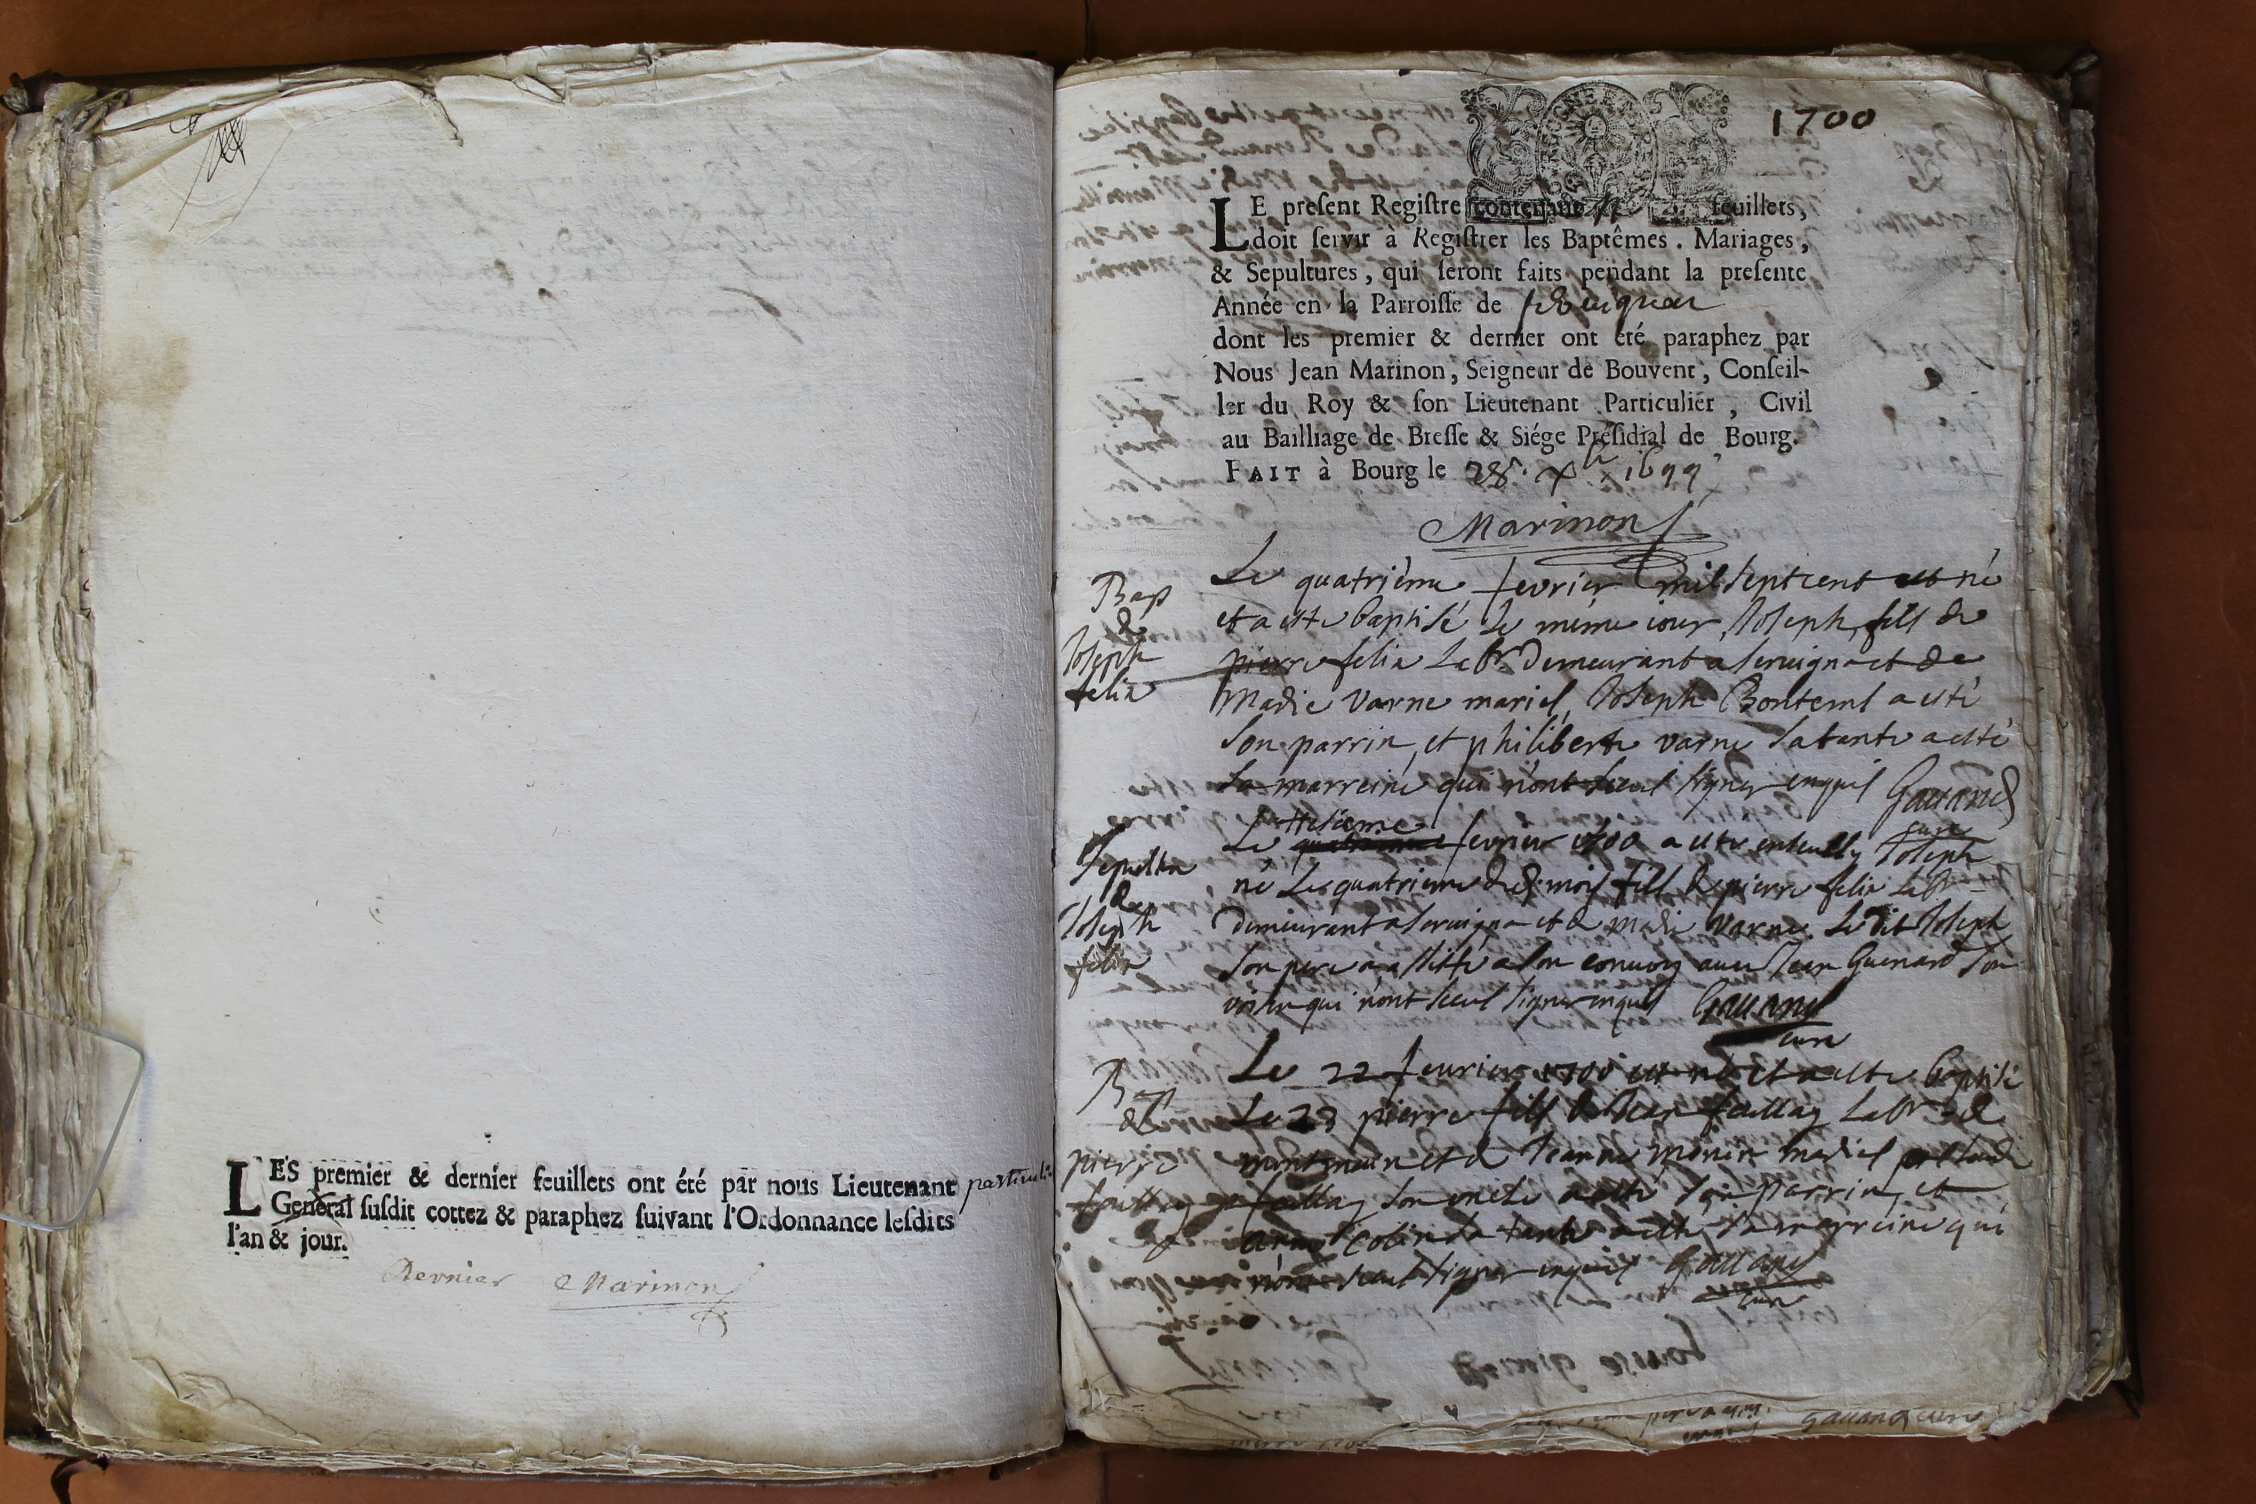 LES premier & dernier feuillets ont été par nous Lieutenant particulier
General susdit cottez & paraphez suivant l'Ordonnance lesdits
l'an & jour.
Dernier Marinon
1700
LE present Registre contenant feuillets,
doit servir à Registrer les Baptêmes. Mariages,
& Sepultures, qui seront faits pendant la presente
Année en la Parroisse de
dont les premier & dernier ont été paraphez par
Nous Jean Marinon, Seigneur de Bouvent, Conseil-
ler du Roy & son Lieutenant Particulier, Civil
au Bailliage de Bresse & Siége Présidial de Bourg.
FAIT à Bourg le 28. Xbr 1699
Marinon
Bap
de
Joseph
felix
Le quatrième fevrier mil sept cent est né
et a esté baptisé le même iour, Joseph, fils de
pierre felix Labr demeurant a seruigna et de
Madie Varne mariés, Joseph Bontems a esté
son parrin, et philiberte varne sa tante a esté
sa marreine, qui n'ont sceus signer enquis Gauand
curé
Sepultu
de
Joseph
felix
Le fevrier 1700 a esté enseuely Joseph
né le quatrieme du d. mois fils de pierre felix Labr
demeurant a seruigna et de madie varne. Le dit Joseph
son pere a assisté a son conuoy auec Jean Guenard son
voisin qui n'ont sceus signer enquis Gauand
curé
Bap
de
pierre
Le 22 feurier 1700 est né et a esté baptisé
Le 23 pierre fils de Jean Labr de
et de Jeanne monin mariés
son oncle a esté son parrin, et
colin sa tante a esté sa marreine qui
n'ont sceus signer enquis Gauand
curé
gauand curé